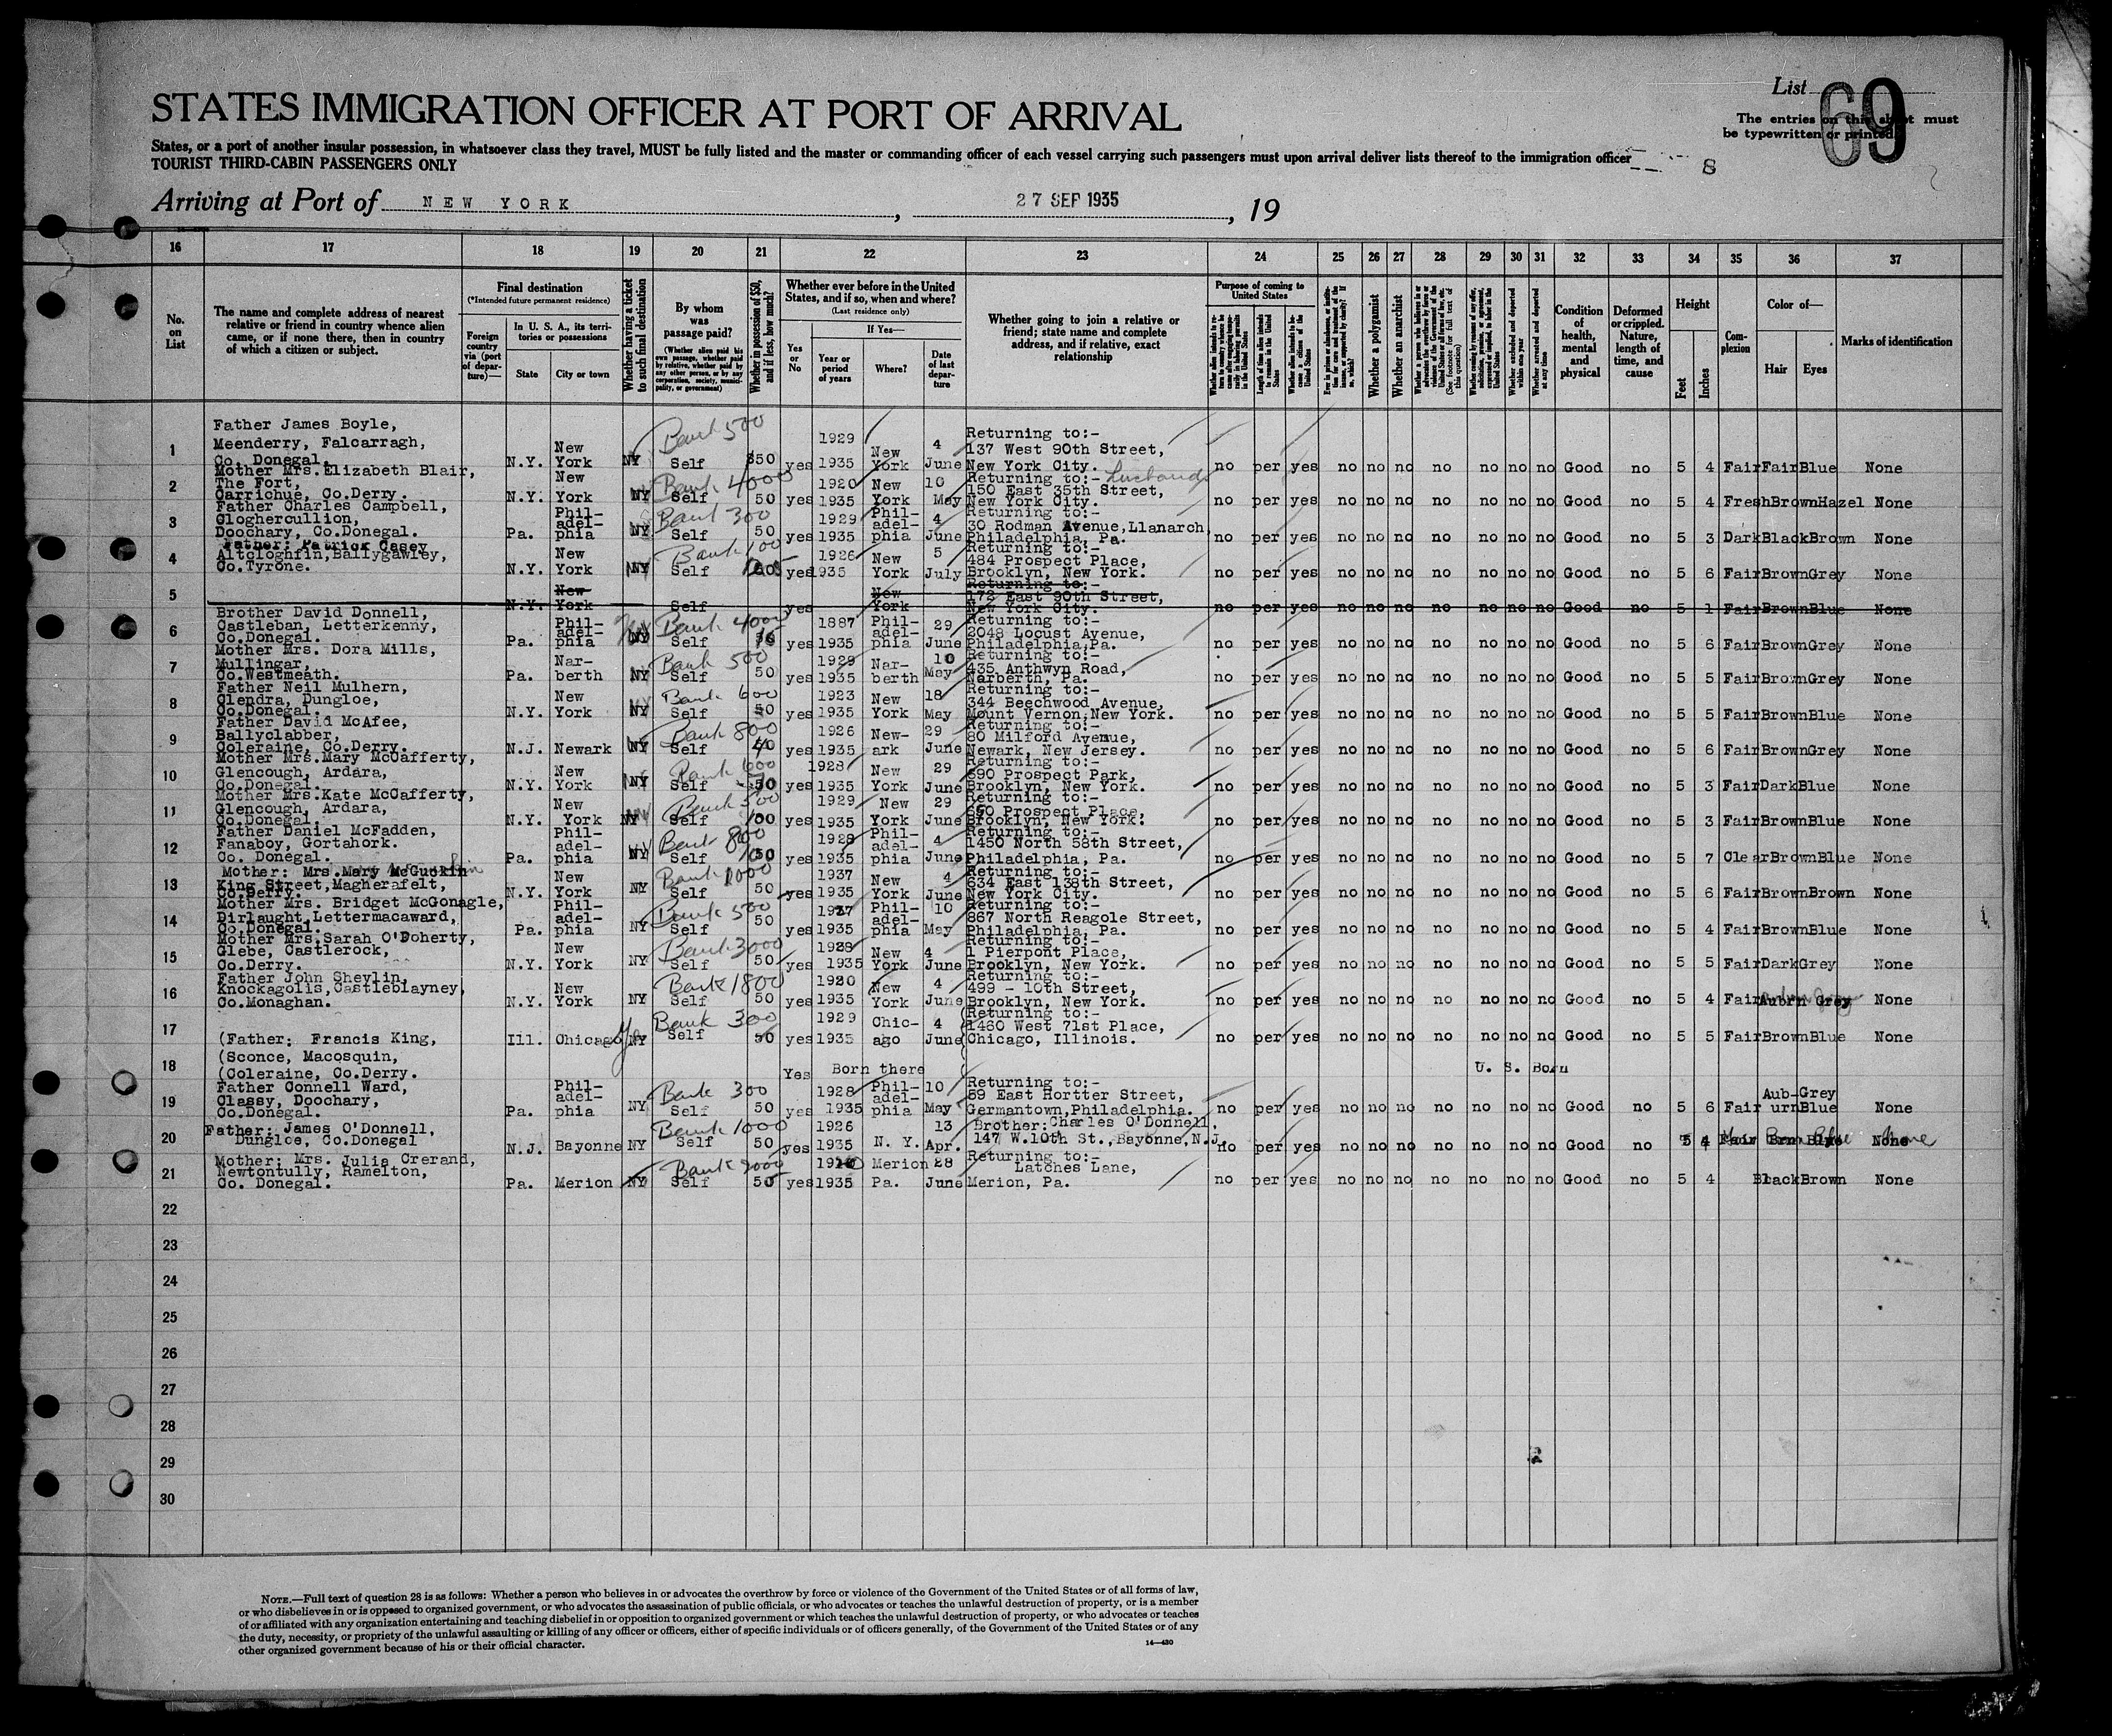 List 69
STATES IMMIGRATION OFFICER AT PORT OF ARRIVAL
The entries on this sheet must
be typewritten or printed.
States, or a port of another insular possession, in whatsoever class they travel, MUST be fully listed and the master or commanding officer of each vessel carrying such passengers must upon arrival deliver lists thereof to the immigration officer
TOURIST THIRD-CABIN PASSENGERS ONLY
8
Arriving at Port of NEW YORK, 27 SEP 1935, 19
16 17 18 19 20 21 22 23 24 25 26 27 28 29 30 31 32 33 34 35 36 37
No. on List
The name and complete address of nearest
relative or friend in country whence alien
came, or if none there, then in country
of which a citizen or subject.
Final destination
(*Intended future permanent residence)
Foreign country via (port of departure)—
In U. S. A., its territories or possessions
State
City or town
Whether having a ticket to such final destination
By whom was passage paid?
(Whether alien paid his own passage, whether paid by relative, whether paid by any other person, or by any corporation, society, municipality, or government)
Whether in possession of $50, and if less, how much?
Whether ever before in the United States, and if so, when and where?
(Last residence only)
Yes or No
If Yes—
Year or period of years
Where?
Date of last departure
Whether going to join a relative or
friend; state name and complete
address, and if relative, exact
relationship
Purpose of coming to United States
Whether a polygamist
Whether an anarchist
Condition of health, mental and physical
Deformed or crippled. Nature, length of time, and cause
Height
Feet
Inches
Complexion
Color of—
Hair
Eyes
Marks of identification
1 Father James Boyle, Meenderry, Falcarragh, Co. Donegal. N.Y. New York NY Bank 500 Self $50 yes 1929 1935 New York 4 June Returning to:- 137 West 90th Street, New York City. no per yes no no no no no no no Good no 5 4 Fair Fair Blue None
2 Mother Mrs.Elizabeth Blair, The Fort, Carrichue, Co.Derry. N.Y. New York NY Bank 4000 Self 50 yes 1920 1935 New York 10 May Returning to:- husband 150 East 35th Street, New York City. no per yes no no no no no no no Good no 5 4 Fresh Brown Hazel None
3 Father Charles Campbell, Cloghercullion, Doochary, Co.Donegal. Pa. Phil-adel-phia NY Bank 300 Self 50 yes 1929 1935 Phil-adel-phia 4 June Returning to:- 30 Rodman Avenue,Llanarch, Philadelphia, Pa. no per yes no no no no no no no Good no 5 3 Dark Black Brown None
4 Father: Patrick Casey Altcloghfin,Ballygawley, Co.Tyrone. N.Y. New York NY Bank 100 Self yes 1926 1935 New York 5 July Returning to:- 484 Prospect Place, Brooklyn, New York. no per yes no no no no no no no Good no 5 6 Fair Brown Grey None
5 N.Y. New York Self yes New York Returning to:- 172 East 90th Street, New York City. no per yes no no no no no no no Good no 5 1 Fair Brown Blue None
6 Brother David Donnell, Castleban, Letterkenny, Co.Donegal. Pa. Phil-adel-phia NY Bank 4000 Self yes 1887 1935 Phil-adel-phia 29 June Returning to:- 2048 Locust Avenue, Philadelphia,Pa. no per yes no no no no no no no Good no 5 6 Fair Brown Grey None
7 Mother Mrs. Dora Mills, Mullingar, Co.Westmeath. Pa. Nar-berth NY Bank 500 Self 50 yes 1929 1935 Nar-berth 10 May Returning to:- 435 Anthwyn Road, Narberth, Pa. no per yes no no no no no no no Good no 5 5 Fair Brown Grey None
8 Father Neil Mulhern, Glendra, Dungloe, Co.Donegal. N.Y. New York NY Bank 600 Self 50 yes 1923 1935 New York 18 May Returning to:- 344 Beechwood Avenue, Mount Vernon,New York. no per yes no no no no no no no Good no 5 5 Fair Brown Blue None
9 Father David McAfee, Ballyclabber, Coleraine, Co.Derry. N.J. Newark NY Bank 800 Self 40 yes 1926 1935 New-ark 29 June Returning to:- 80 Milford Avenue, Newark, New Jersey. no per yes no no no no no no no Good no 5 6 Fair Brown Grey None
10 Mother Mrs.Mary McCafferty, Glencough, Ardara, Co.Donegal. N.Y. New York NY Bank 600 Self 50 yes 1928 1935 New York 29 June Returning to:- 690 Prospect Park, Brooklyn, New York. no per yes no no no no no no no Good no 5 3 Fair Dark Blue None
11 Mother Mrs.Kate McCafferty, Glencough, Ardara, Co.Donegal. N.Y. New York NY Bank 500 Self 100 yes 1929 1935 New York 29 June Returning to:- 690 Prospect Place, Brooklyn, New York. no per yes no no no no no no no Good no 5 3 Fair Brown Blue None
12 Father Daniel McFadden, Fanaboy, Gortahork. Co. Donegal. Pa. Phil-adel-phia NY Bank 800 Self yes 1928 1935 Phil-adel-phia 4 June Returning to:- 1450 North 58th Street, Philadelphia, Pa. no per yes no no no no no no no Good no 5 7 Clear Brown Blue None
13 Mother: Mrs.Mary McGuckin King Street,Magherafelt, Co.Derry. N.Y. New York NY Bank 1000 Self 50 yes 1927 1935 New York 4 June Returning to:- 634 East 138th Street, New York City. no per yes no no no no no no no Good no 5 6 Fair Brown Brown None
14 Mother Mrs. Bridget McGonagle, Dirlaught,Lettermacaward, Co.Donegal. Pa. Phil-adel-phia NY Bank 500 Self 50 yes 1927 1935 Phil-adel-phia 10 May Returning to:- 867 North Reagole Street, Philadelphia, Pa. no per yes no no no no no no no Good no 5 4 Fair Brown Blue None
15 Mother Mrs.Sarah O'Doherty, Glebe, Castlerock, Co.Derry. N.Y. New York NY Bank 3000 Self 50 yes 1928 1935 New York 4 June Returning to:- 1 Pierpont Place, Brooklyn, New York. no per yes no no no no no no no Good no 5 5 Fair Dark Grey None
16 Father John Shevlin, Knockagolis,Castleblayney, Co.Monaghan. N.Y. New York NY Bank 1800 Self 50 yes 1920 1935 New York 4 June Returning to:- 499 - 10th Street, Brooklyn, New York. no per yes no no no no no no no Good no 5 4 Fair Auburn Grey None
17 (Father: Francis King, Ill. Chicago NY Bank 300 Self 50 yes 1929 1935 Chic-ago 4 June (Returning to:- 1460 West 71st Place, Chicago, Illinois. no per yes no no no no no no no Good no 5 5 Fair Brown Blue None
18 (Sconce, Macosquin, (Coleraine, Co.Derry. Yes Born there U. S. Born
19 Father Connell Ward, Classy, Doochary, Co.Donegal. Pa. Phil-adel-phia NY Bank 300 Self 50 yes 1928 1935 Phil-adel-phia 10 May Returning to:- 59 East Hortter Street, Germantown,Philadelphia. no per yes no no no no no no no Good no 5 6 Fair Aub-urn Grey Blue None
20 Father: James O'Donnell, Dungloe, Co.Donegal N.J. Bayonne NY Bank 1000 Self 50 yes 1926 1935 N. Y. 13 Apr. Brother: Charles O'Donnell, 147 W.10th St.,Bayonne,N.J. no per yes no no no no no no no Good no 5 4 Fair Brn Blue None
21 Mother: Mrs. Julia Crerand, Newtontully, Ramelton, Co. Donegal. Pa. Merion NY Bank 2000 Self 50 yes 1920 1935 Merion Pa. 28 June Returning to:- Latches Lane, Merion, Pa. no per yes no no no no no no no Good no 5 4 Black Brown None
22
23
24
25
26
27
28
29
30
NOTE.—Full text of question 28 is as follows: Whether a person who believes in or advocates the overthrow by force or violence of the Government of the United States or of all forms of law,
or who disbelieves in or is opposed to organized government, or who advocates the assassination of public officials, or who advocates or teaches the unlawful destruction of property, or is a member
of or affiliated with any organization entertaining and teaching disbelief in or opposition to organized government or which teaches the unlawful destruction of property, or who advocates or teaches
the duty, necessity, or propriety of the unlawful assaulting or killing of any officer or officers, either of specific individuals or of officers generally, of the Government of the United States or of any
other organized government because of his or their official character.
14—430